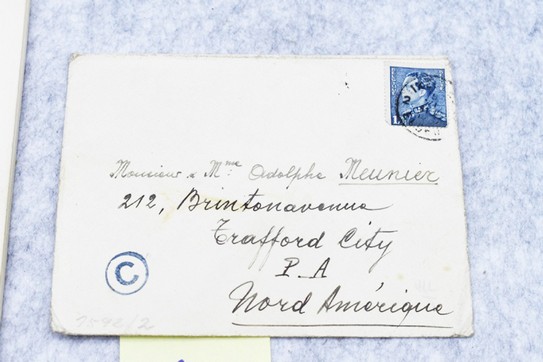 Monsieur & Mme Adolphe Meunier
212, Brintonavenue
Trafford City
P_A
Nord Amérique
C